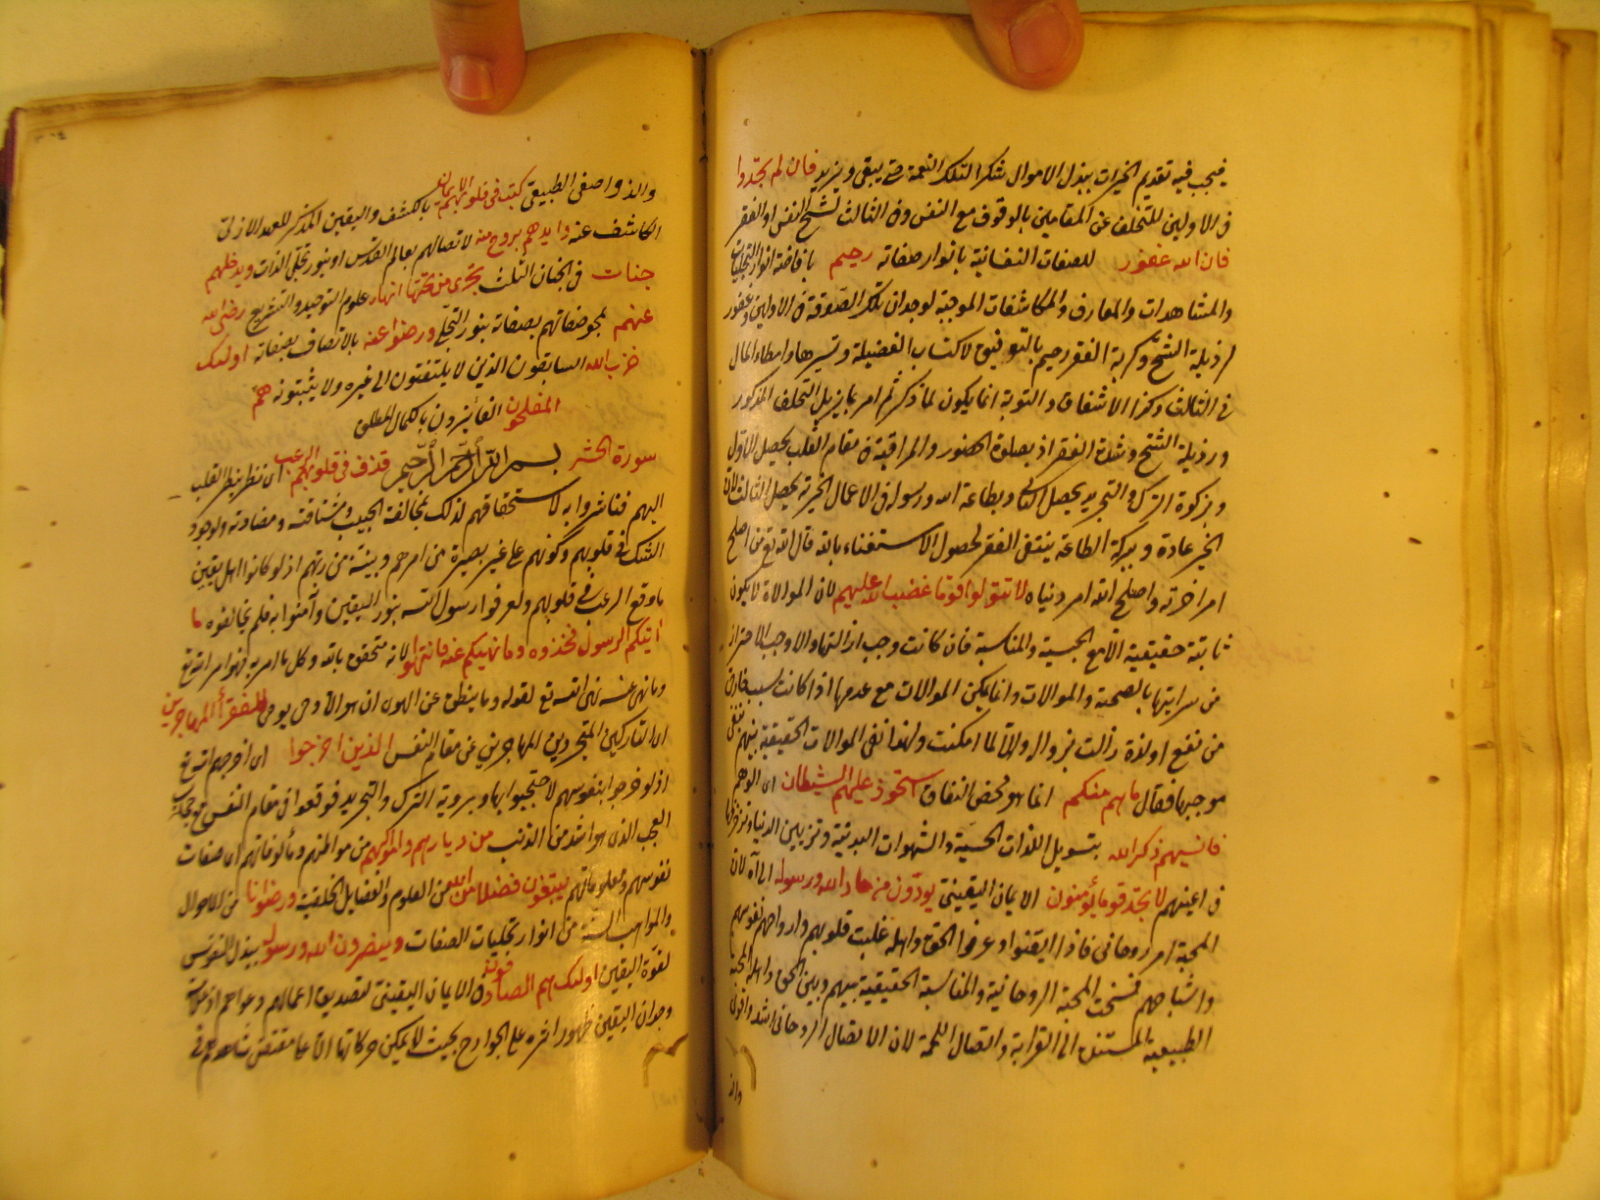 فيجب فيه تقديم الخيرات ببذل الاموال شكرا لتلك النعمة حتى يبقى ويزيد فان لم تجدوا
فى الاولين للتخلف عن المقامين بالوقوف مع النفس وفى الثالث لشح النفس او الفقر
فان الله غفور للصفات النفسانية بانوار صفاته رحيم بافاضة انوار التجليات
والمشاهدات والمعارف والمكاشفات الموجبة لوجدان تلك الصدقة فى الاولين وغفور
لرذيلة الشح وكربة الفقر رحيم بالتوفيق لاكتساب الفضيلة وتيسرها واعطاء المال
فى الثالث وكذا الاشفاق والتوبة انما يكون لما ذكر ثم امر بما يزيل التخلف المذكور
ورذيلة الشح وشدة الفقر اذ بصلوة الحضور والمراقبة فى مقام القلب يحصل الاول
وبزكوة الترك والتجريد يحصل الثانى وبطاعة الله ورسوله فى الاعمال الخيرية يحصل الثالث لان
الخير عادة وببركة الطاعة ينتفى الفقر لحصول الاستغناء بالله قال الله تع من اصلح
امر اخرته واصلح الله امر دنياه لا تتولوا قوما غضب الله عليهم لان الموالاة لا يكون
ثابتة حقيقية الا مع الجنسية والمناسبة فان كانت وجب ازالتها والا وجب الاحتراز
من سرايتها بالصحبة والموالات وانما يمكن الموالات مع عدمها اذا كانت بسبب خارجى
من نفع او لذة زالت بزواله والا لما امكنت ولهذا نفى الموالات الحقيقية بينهم بنفى
موجبها فقال ما هم منكم انما هو لمحض النفاق استحوذ عليهم الشيطان اى الوهم
فانسيهم ذكر الله بتسويل اللذات الحسية والشهوات البدنية وتزيين الدنيا وزخرفها
فى اعينهم لا تجد قوما يؤمنون الايمان اليقينى يوادون من حاد الله ورسوله الى اه لان
المحبة امر روحانى فاذا ايقنوا وعرفوا الحق واهله غلبت قلوبهم وارواحهم نفوسهم
واشباحهم فنسخت المحبة الروحانية والمناسبة الحقيقية بينهم وبين الحق واهله المحبة
الطبيعية المستندة الى القرابة واتصال اللحمة لان الاتصال الروحانى اشد واقوى
والذ
والذ واصفى الطبيعى كتب فى قلوبهم الايمان بالكشف واليقين المذكر للعهد الازلى
الكاشف عنه وايدهم بروح منه لاتصالهم بعالم القدس او بنور تجلى الذات ويدخلهم
جنات فى الجنان الثلث تجرى من تحتها انهار علوم التوحيد والتشريع رضى الله
عنهم بمحو صفاتهم بصفاته بنور التجلى ورضوا عنه بالاتصاف بصفاته اولئك
حزب الله السابقون الذين لا يلتفتون الى غيره ولا يثبتونه هم
المفلحون الفائزون بالكمال المطلق
سورة الحشر بسم الله الرحمن الرحيم قذف فى قلوبهم الرعب اى نظر بنظر القلب
اليهم فتاثروا به لاستحقاقهم لذلك بمخالفة الحبيب ومشاقته ومضادته ولوجود
الشك فى قلوبهم وكونهم على غير بصيرة من امرهم وبينة من ربهم اذ لو كانوا اهل يقين
ما وقع الرعب فى قلوبهم ولعرفوا رسول الله بنور اليقين وآمنوا به فلم يخالفوه ما
اتيكم الرسول فخذوه وما نهيكم عنه فانتهوا لانه متحقق بالله وكل ما امر به فهو امر الله تع
وما نهى عنه نهى الله تع لقوله وما ينطق عن الهوى ان هو الا وحى يوحى للفقراء المهاجرين
اى التاركين المتجردين المهاجرين عن مقام النفس الذين اخرجوا اى اخرجهم الله تع
اذ لو خرجوا بنفوسهم لاحتجبوا بها وبرؤية الترك والتجريد فوقعوا فى مقام النفس مع حجاب
العجب الذى هو اشد من الذنب من ديارهم واموالهم من مواطنهم ومألوفاتهم اى صفات
نفوسهم ومعلوماتهم يبتغون فضلا من الله من العلوم والفضايل الخلقية ورضوانا من الاحوال
والمواهب السنية من انوار تجليات الصفات وينصرون الله ورسوله ببذل النفوس
لقوة اليقين اولئك هم الصادقون فى الايمان اليقينى لتصديق اعمالهم دعواهم اذ علامة
وجدان اليقين ظهور اثره على الجوارح بحيث لا يمكن حركاتها الا على مقتضى شاهدهم فى